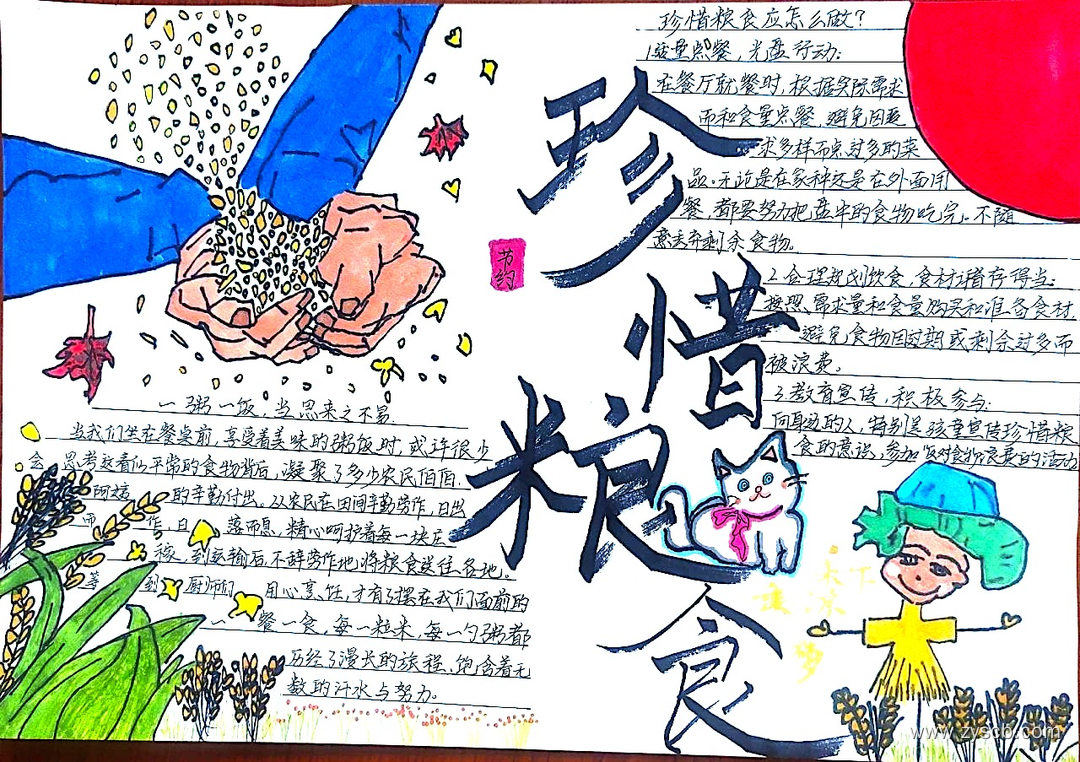 珍惜粮食
节约
一粥一饭,当思来之不易
当我们坐在餐桌前,享受着美味的粥饭时,或许很少
会思考这看似平常的食物背后,凝聚了多少农民伯伯
阿姨的辛勤付出。从农民在田间辛勤劳作,日出
而作,日落而息,精心呵护着每一块庄
稼,到运输后不辞劳作地将粮食送往各地。
等到厨师们用心烹饪,才有了摆在我们面前的
一餐一食,每一粒米,每一勺粥都
历经了漫长的旅程,饱含着无
数的汗水与努力。
珍惜粮食应怎么做?
1.适量点餐,光盘行动:
在餐厅就餐时,根据实际需求
而和食量点餐,避免因
求多样而点过多的菜
品。无论是在家种还是在外面用
餐,都要努力把盘中的食物吃完,不随
意丢弃剩余食物。
2.合理规划饮食,食材储存得当:
按照需求量和食量购买和准备食材,
避免食物因过期或剩余过多而
被浪费。
3.教育宣传,积极参与:
向身边的人,特别是孩童宣传珍惜粮
食的意识,参加反对食物浪费的活动
天下
www.zyscb.com